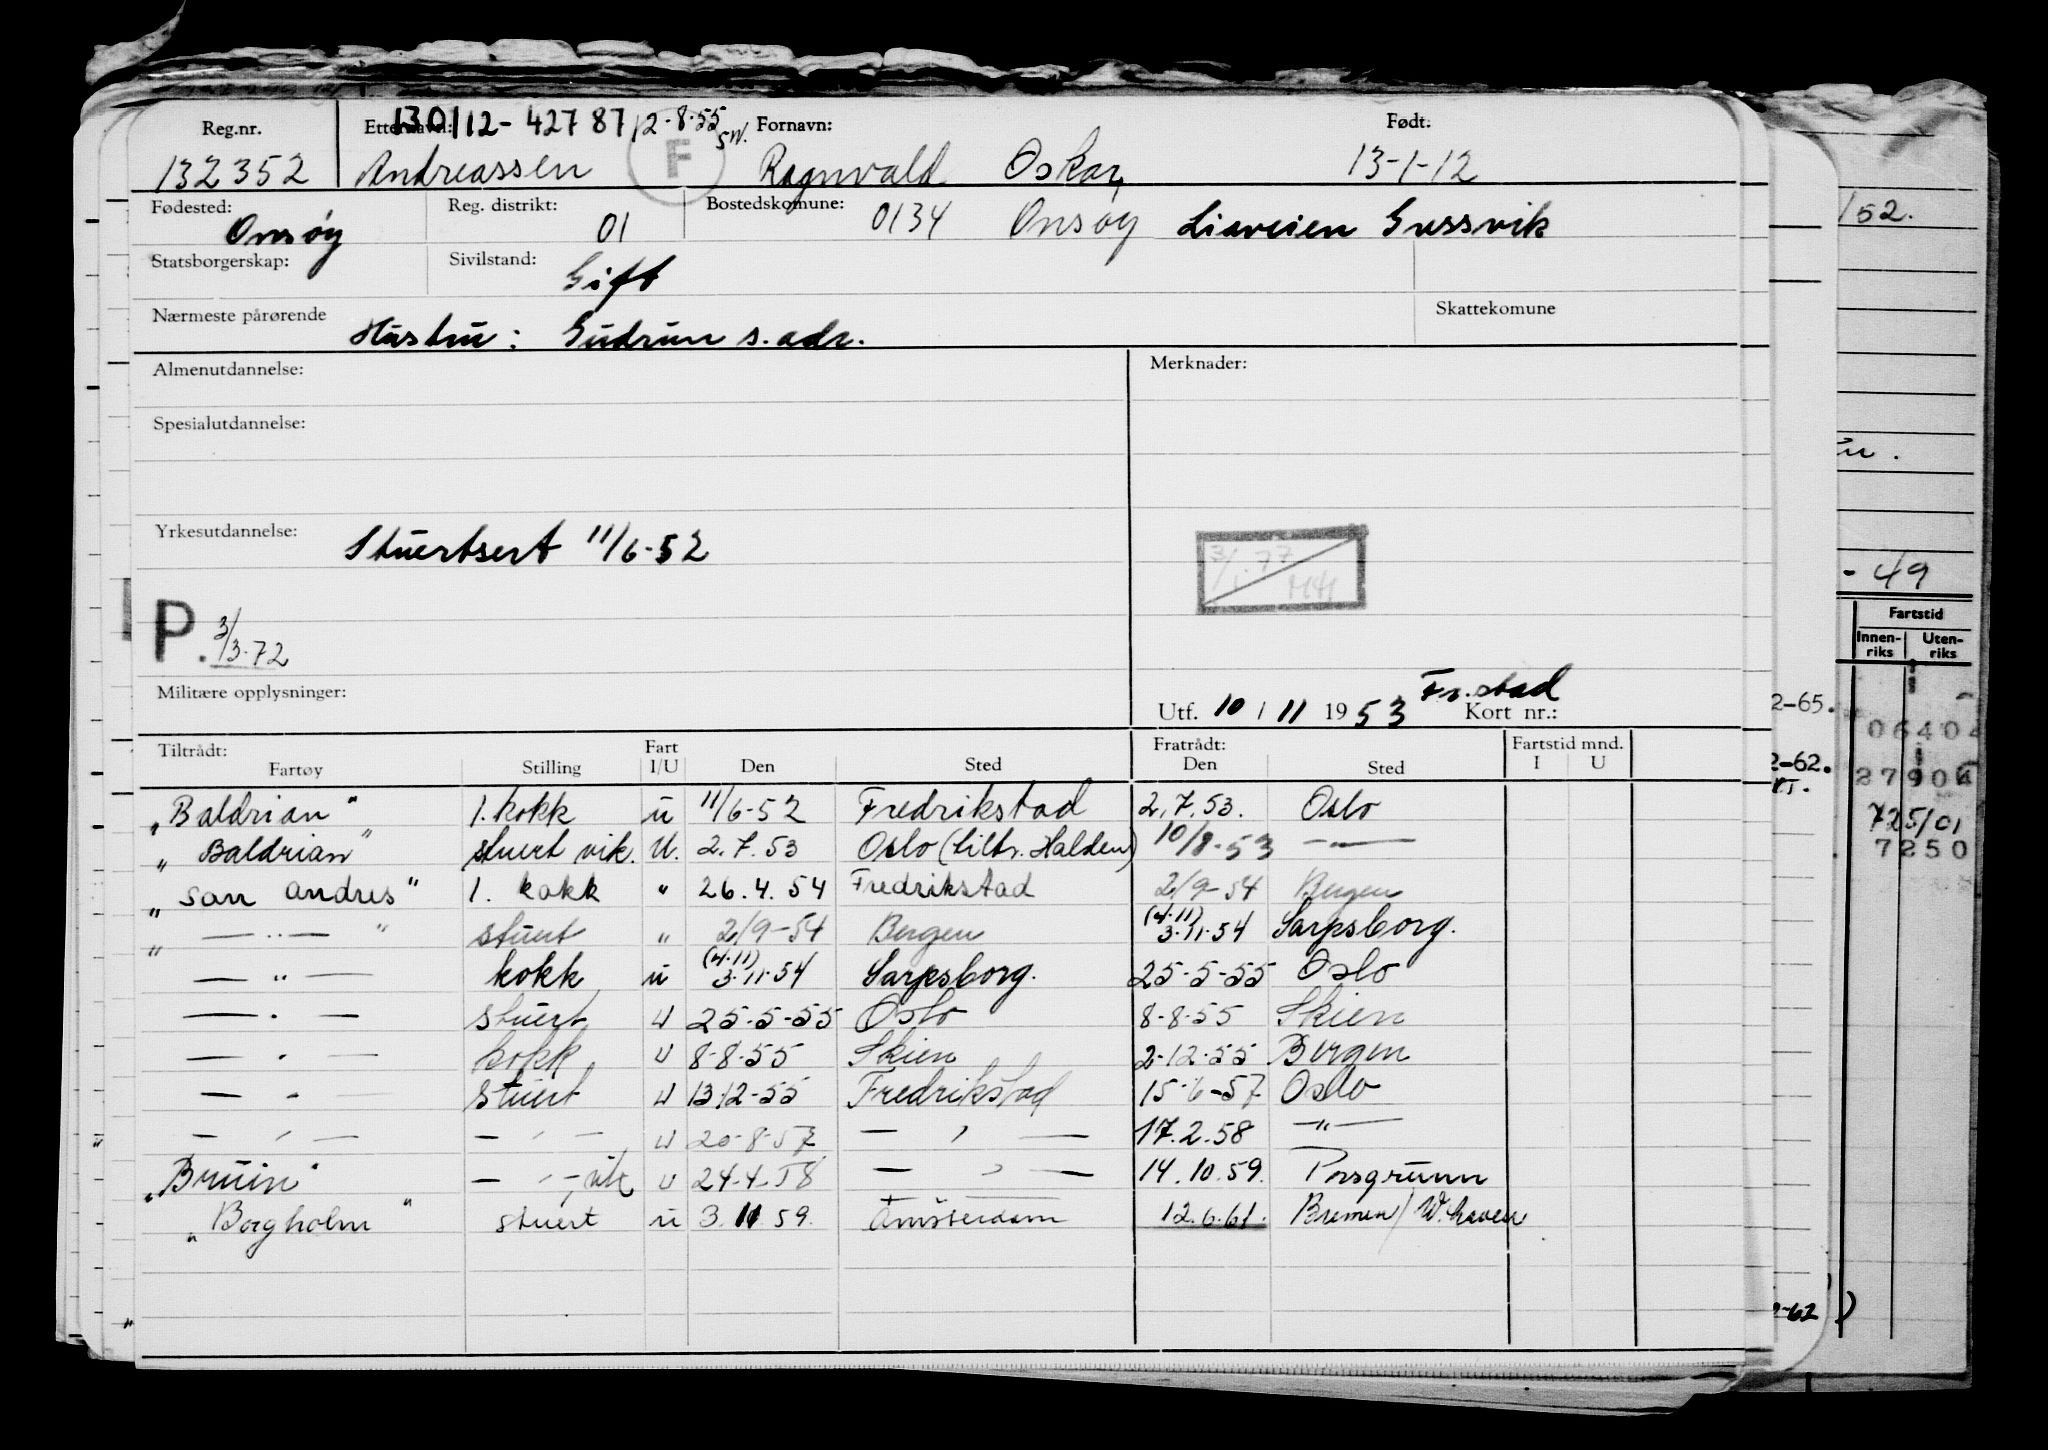 Reg.nr. Etternavn: 130112-42787 12-8-55 SW. Fornavn: Født:
132352 Andreassen F Ragnvald Oskar 13-1-12
Fødested: Reg. distrikt: Bostedskomune:
Onsøy 01 0134 Onsøy Liaveien Gressvik
Statsborgerskap: Sivilstand:
Gift
Nærmeste pårørende Skattekomune
Hustru: Gudrun s. adr.
Almenutdannelse: Merknader:
Spesialutdannelse:
Yrkesutdannelse: Stuertsert 11/6-52
3/1.77
P. 3/3-72
Militære opplysninger: Utf. 10 / 11 1953 Fr.stad Kort nr.:
Tiltrådt: Fart Fratrådt: Fartstid mnd.
Fartøy Stilling I/U Den Sted Den Sted I U
"Baldrian" 1. kokk u 11/6-52 Fredrikstad 2.7.53. Oslo
"Baldrian" stuert vik. U. 2.7.53 Oslo (tiltr. Halden) 10/8-53 — " —
"San Andres" 1. kokk " 26.4.54 Fredrikstad 2/9-54 Bergen
" — " — " stuert " 2/9-54 Bergen (4.11) 3.11.54 Sarpsborg.
— " — kokk u (4.11) 3.11.54 Sarpsborg. 25-5-55 Oslo
— " — stuert u 25-5-55 Oslo 8-8-55 Skien
— " — kokk u 8-8-55 Skien 2-12-55 Bergen
— " — stuert u 13-12-55 Fredrikstad 15-6-57 Oslo
— " — — " — u 20-8-57 — " — 17.2.58 — " —
"Bruin" — " — vik u 24-4-58 — " — 14.10.59. Porsgrunn
"Borgholm" stuert u 3.11.59. Amsterdam 12.6.61. Bremen / W.haven
/52.
- 49
Fartstid
Innenriks Utenriks
2-65.
0640
2-62.
2790
725/01
7250
2-62 )